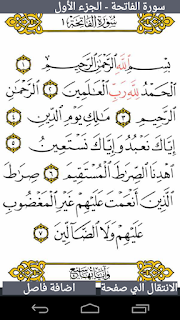 سورة الفاتحة - الجزء الأول
سُورَةُ الْفَاتِحَةِ ١
بِسْمِ اللَّهِ الرَّحْمَٰنِ الرَّحِيمِ ١
الْحَمْدُ لِلَّهِ رَبِّ الْعَالَمِينَ ٢ الرَّحْمَٰنِ
الرَّحِيمِ ٣ مَالِكِ يَوْمِ الدِّينِ ٤
إِيَّاكَ نَعْبُدُ وَإِيَّاكَ نَسْتَعِينُ ٥
اهْدِنَا الصِّرَاطَ الْمُسْتَقِيمَ ٦ صِرَاطَ
الَّذِينَ أَنْعَمْتَ عَلَيْهِمْ غَيْرِ الْمَغْضُوبِ
عَلَيْهِمْ وَلَا الضَّالِّينَ ٧
الانتقال الي صفحة اضافة فاصل